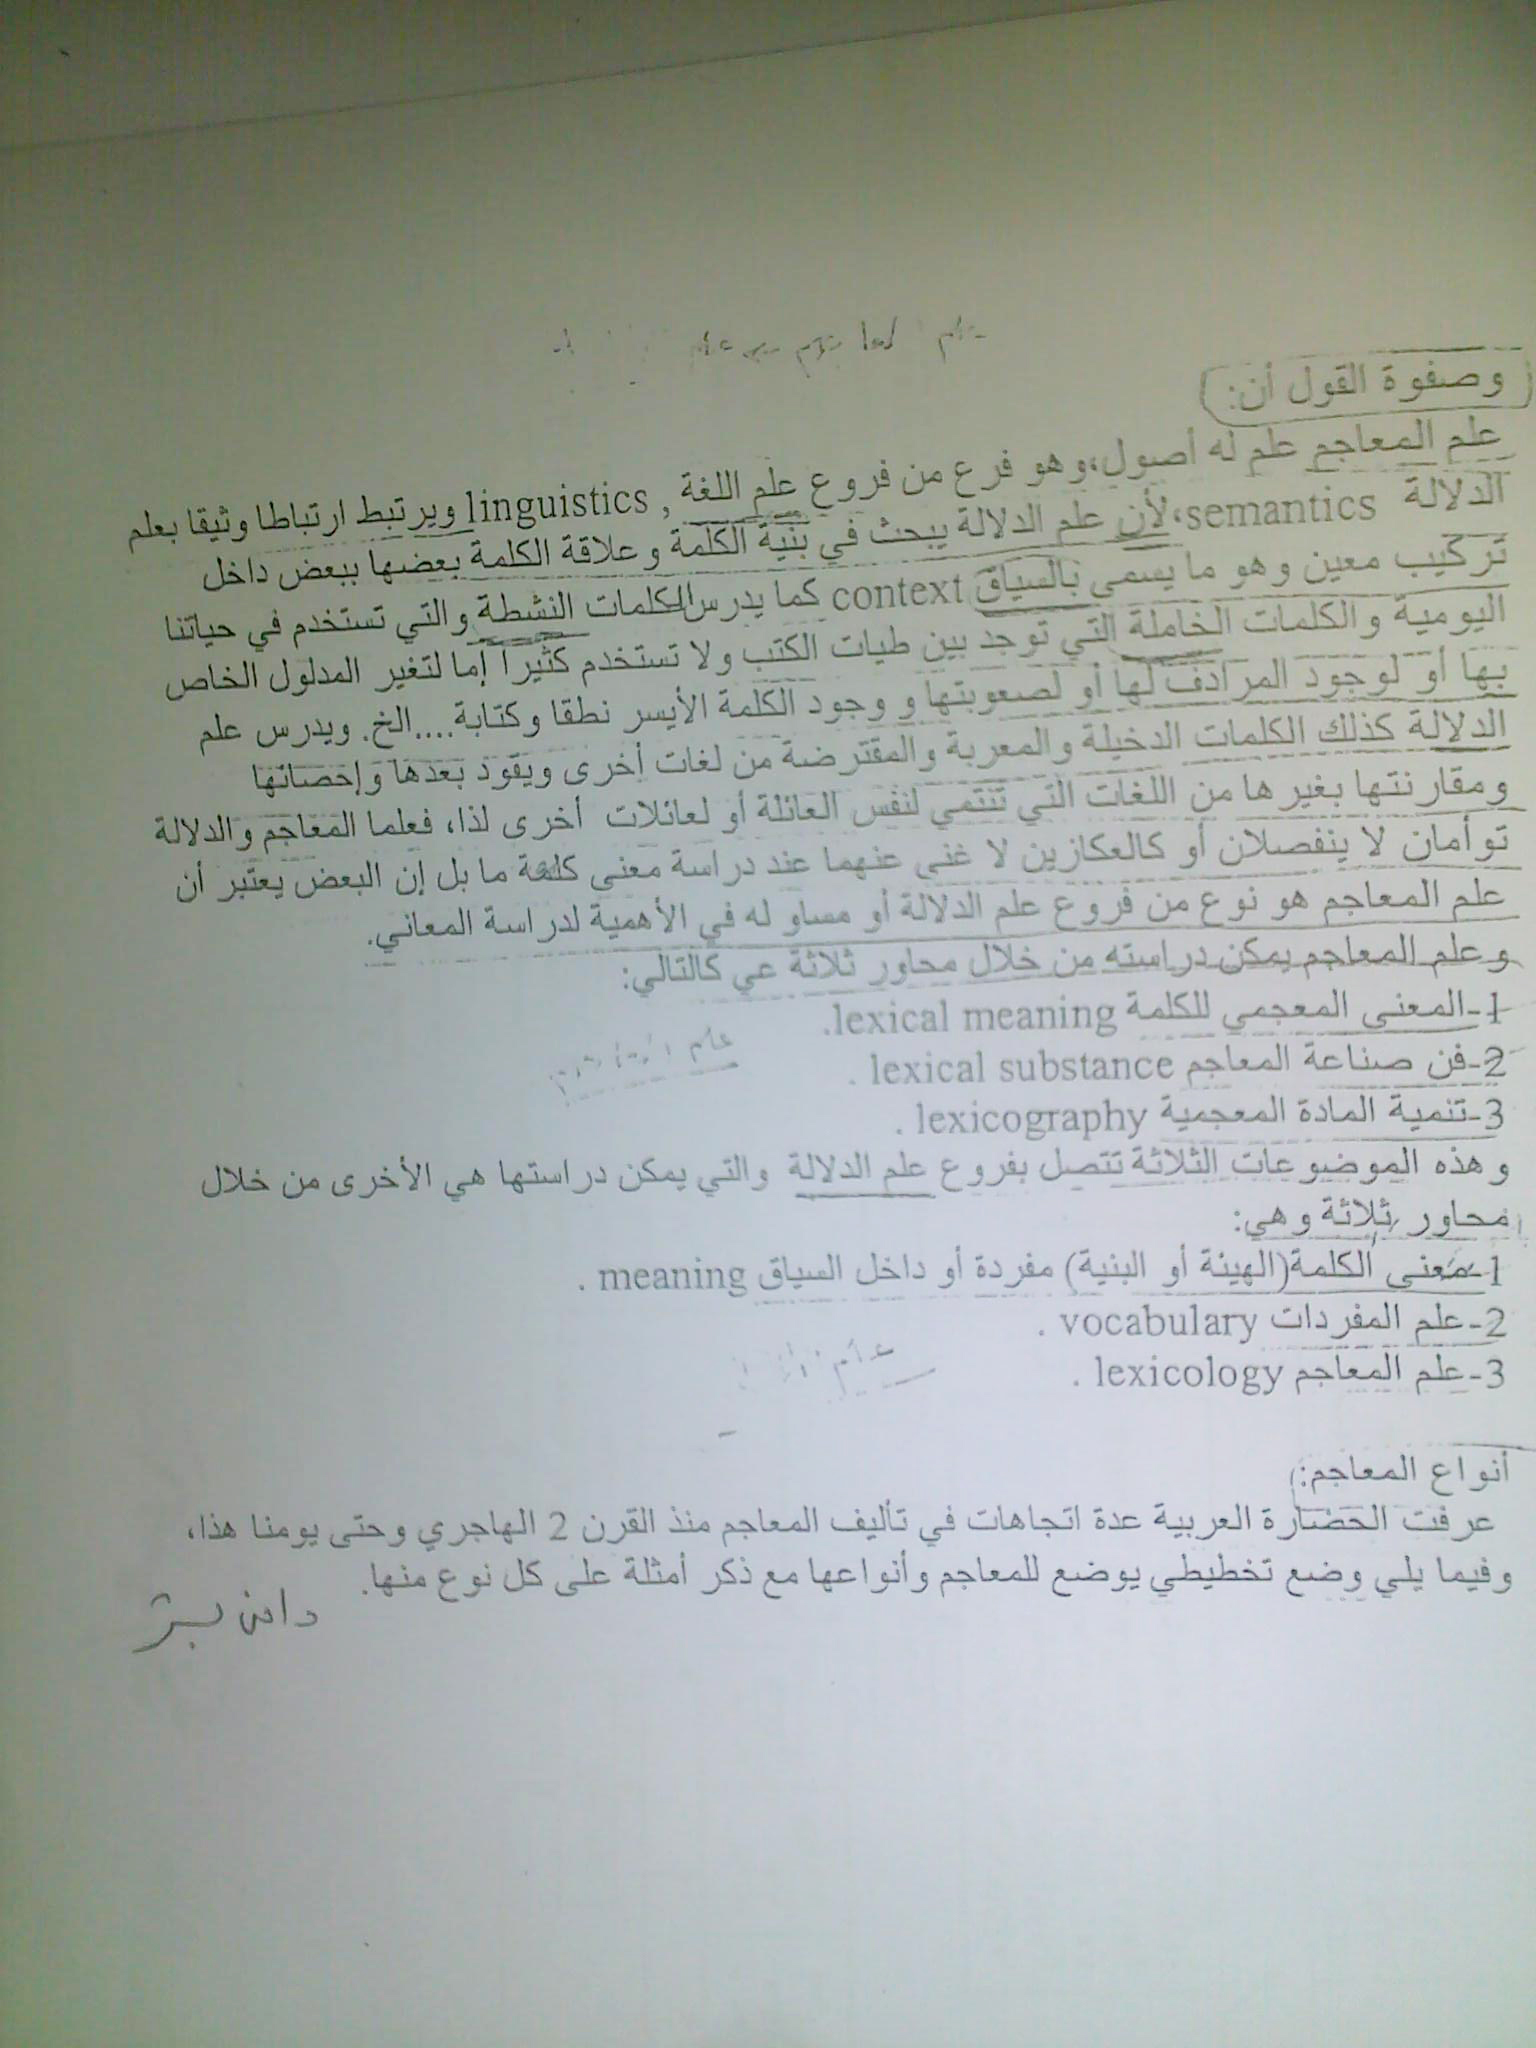 وصفوة القول أن:
علم المعاجم علم له أصول،وهو فرع من فروع علم اللغة , linguistics ويرتبط ارتباطا وثيقا بعلم
الدلالة semantics،لأن علم الدلالة يبحث في بنية الكلمة وعلاقة الكلمة بعضها ببعض داخل
تركيب معين وهو ما يسمى بالسياق context كما يدرس الكلمات النشطة والتي تستخدم في حياتنا
اليومية والكلمات الخاملة التي توجد بين طيات الكتب ولا تستخدم كثيرا إما لتغير المدلول الخاص
بها أو لوجود المرادف لها أو لصعوبتها و وجود الكلمة الأيسر نطقا وكتابة....الخ. ويدرس علم
الدلالة كذلك الكلمات الدخيلة والمعربة والمقترضة من لغات أخرى ويقود بعدها وإحصائها
ومقارنتها بغيرها من اللغات التي تنتمي لنفس العائلة أو لعائلات أخرى لذا، فعلما المعاجم والدلالة
توأمان لا ينفصلان أو كالعكازين لا غنى عنهما عند دراسة معنى كلمة ما بل إن البعض يعتبر أن
علم المعاجم هو نوع من فروع علم الدلالة أو مساو له في الأهمية لدراسة المعاني.
وعلم المعاجم يمكن دراسته من خلال محاور ثلاثة عي كالتالي:
1-المعنى المعجمي للكلمة lexical meaning.
2-فن صناعة المعاجم lexical substance .
علم
3-تنمية المادة المعجمية lexicography .
وهذه الموضوعات الثلاثة تتصل بفروع علم الدلالة والتي يمكن دراستها هي الأخرى من خلال
محاور ثلاثة وهي:
1-معنى الكلمة(الهيئة أو البنية) مفردة أو داخل السياق meaning .
2-علم المفردات vocabulary .
علم
3-علم المعاجم lexicology .
أنواع المعاجم:
عرفت الحضارة العربية عدة اتجاهات في تأليف المعاجم منذ القرن 2 الهاجري وحتى يومنا هذا،
وفيما يلي وضع تخطيطي يوضع للمعاجم وأنواعها مع ذكر أمثلة على كل نوع منها.